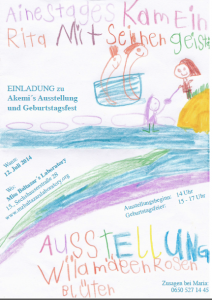 AinestAGes KAm Ein
RitA Mit Sehnen geist
EINLADUNG zu
Akemi´s Ausstellung
und Geburtstagsfest
Wann:
12. Juli 2014
Wo:
Miss Baltazar´s Laboratory
15, Sechshauserstraße 28
www.mzbaltazarslaboratory.org
Ausstellungsbeginn: 14 Uhr
Geburtstagsfeier: 15 - 17 Uhr
AUSSTELLUNG
WilDmADeenRosen
BLüten
Zusagen bei Mama:
0650 527 14 45